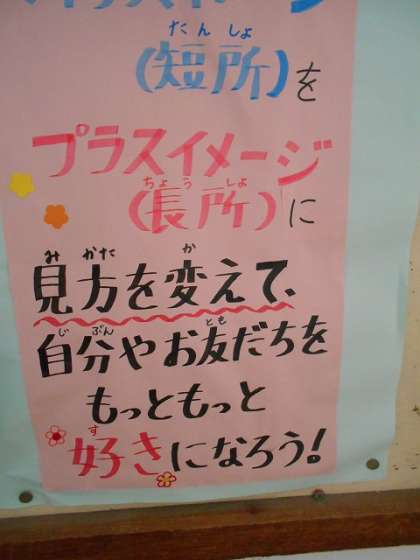 (短所)を
プラスイメージ
(長所)に
見方を変えて、
自分やお友だちを
もっともっと
好きになろう!